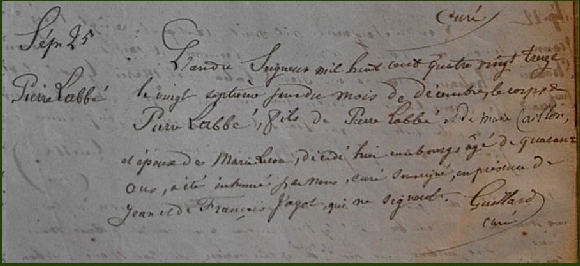 Curé
Sépre 25
Pierre Labbé
L'an du Seigneur mil huit cent quatre vingt treize
le vingt septième jour du mois de décembre, le corps de
Pierre Labbé, fils de Pierre Labbé et de marie
et époux de Marie décédé hier au bourg âgé de quarante
ans, a été inhumé par nous, curé soussigné, en présence de
Jean et de François Jagot, qui ne signent. Guittard
curé